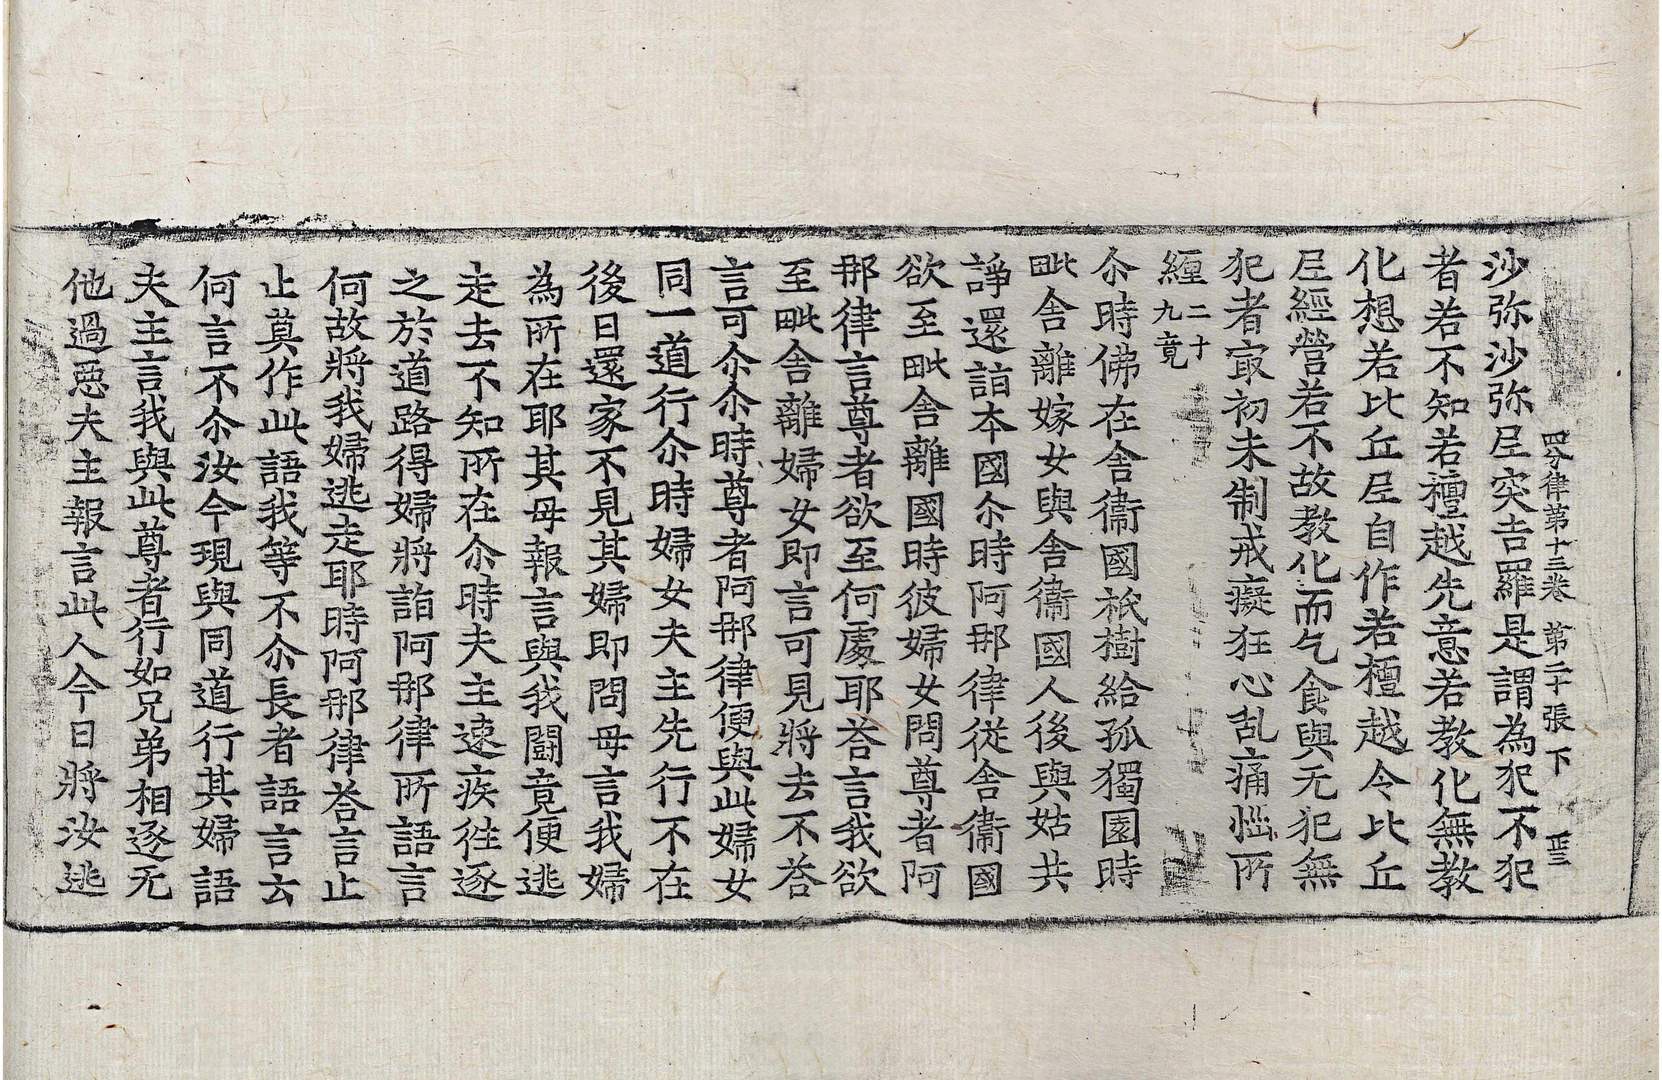 四分律第十三卷　第二十張　下
沙弥沙弥尼突吉羅是謂為犯不犯
者若不知若檀越先意若教化無教
化想若比丘尼自作若檀越令比丘
尼經營若不故教化而乞食與无犯無
犯者冣初未制戒癡狂心乱痛惱所
纏二十九竟
尒時佛在舍衞國祇樹給孤獨園時
毗舍離嫁女與舍衞國人後與姑共
諍還詣本國尒時阿那律從舍衞國
欲至毗舍離國時彼婦女問尊者阿
那律言尊者欲至何處耶荅言我欲
至毗舍離婦女即言可見將去不荅
言可尒尒時尊者阿那律便與此婦女
同一道行尒時婦女夫主先行不在
後日還家不見其婦即問母言我婦
為所在耶其母報言與我鬪竟便逃
走去不知所在尒時夫主速疾徃逐
之於道路得婦將詣阿那律所語言
何故將我婦逃走耶時阿那律荅言止
止莫作此語我等不尒長者語言云
何言不尒汝今現與同道行其婦語
夫主言我與此尊者行如兄弟相逐无
他過惡夫主報言此人今日將汝逃